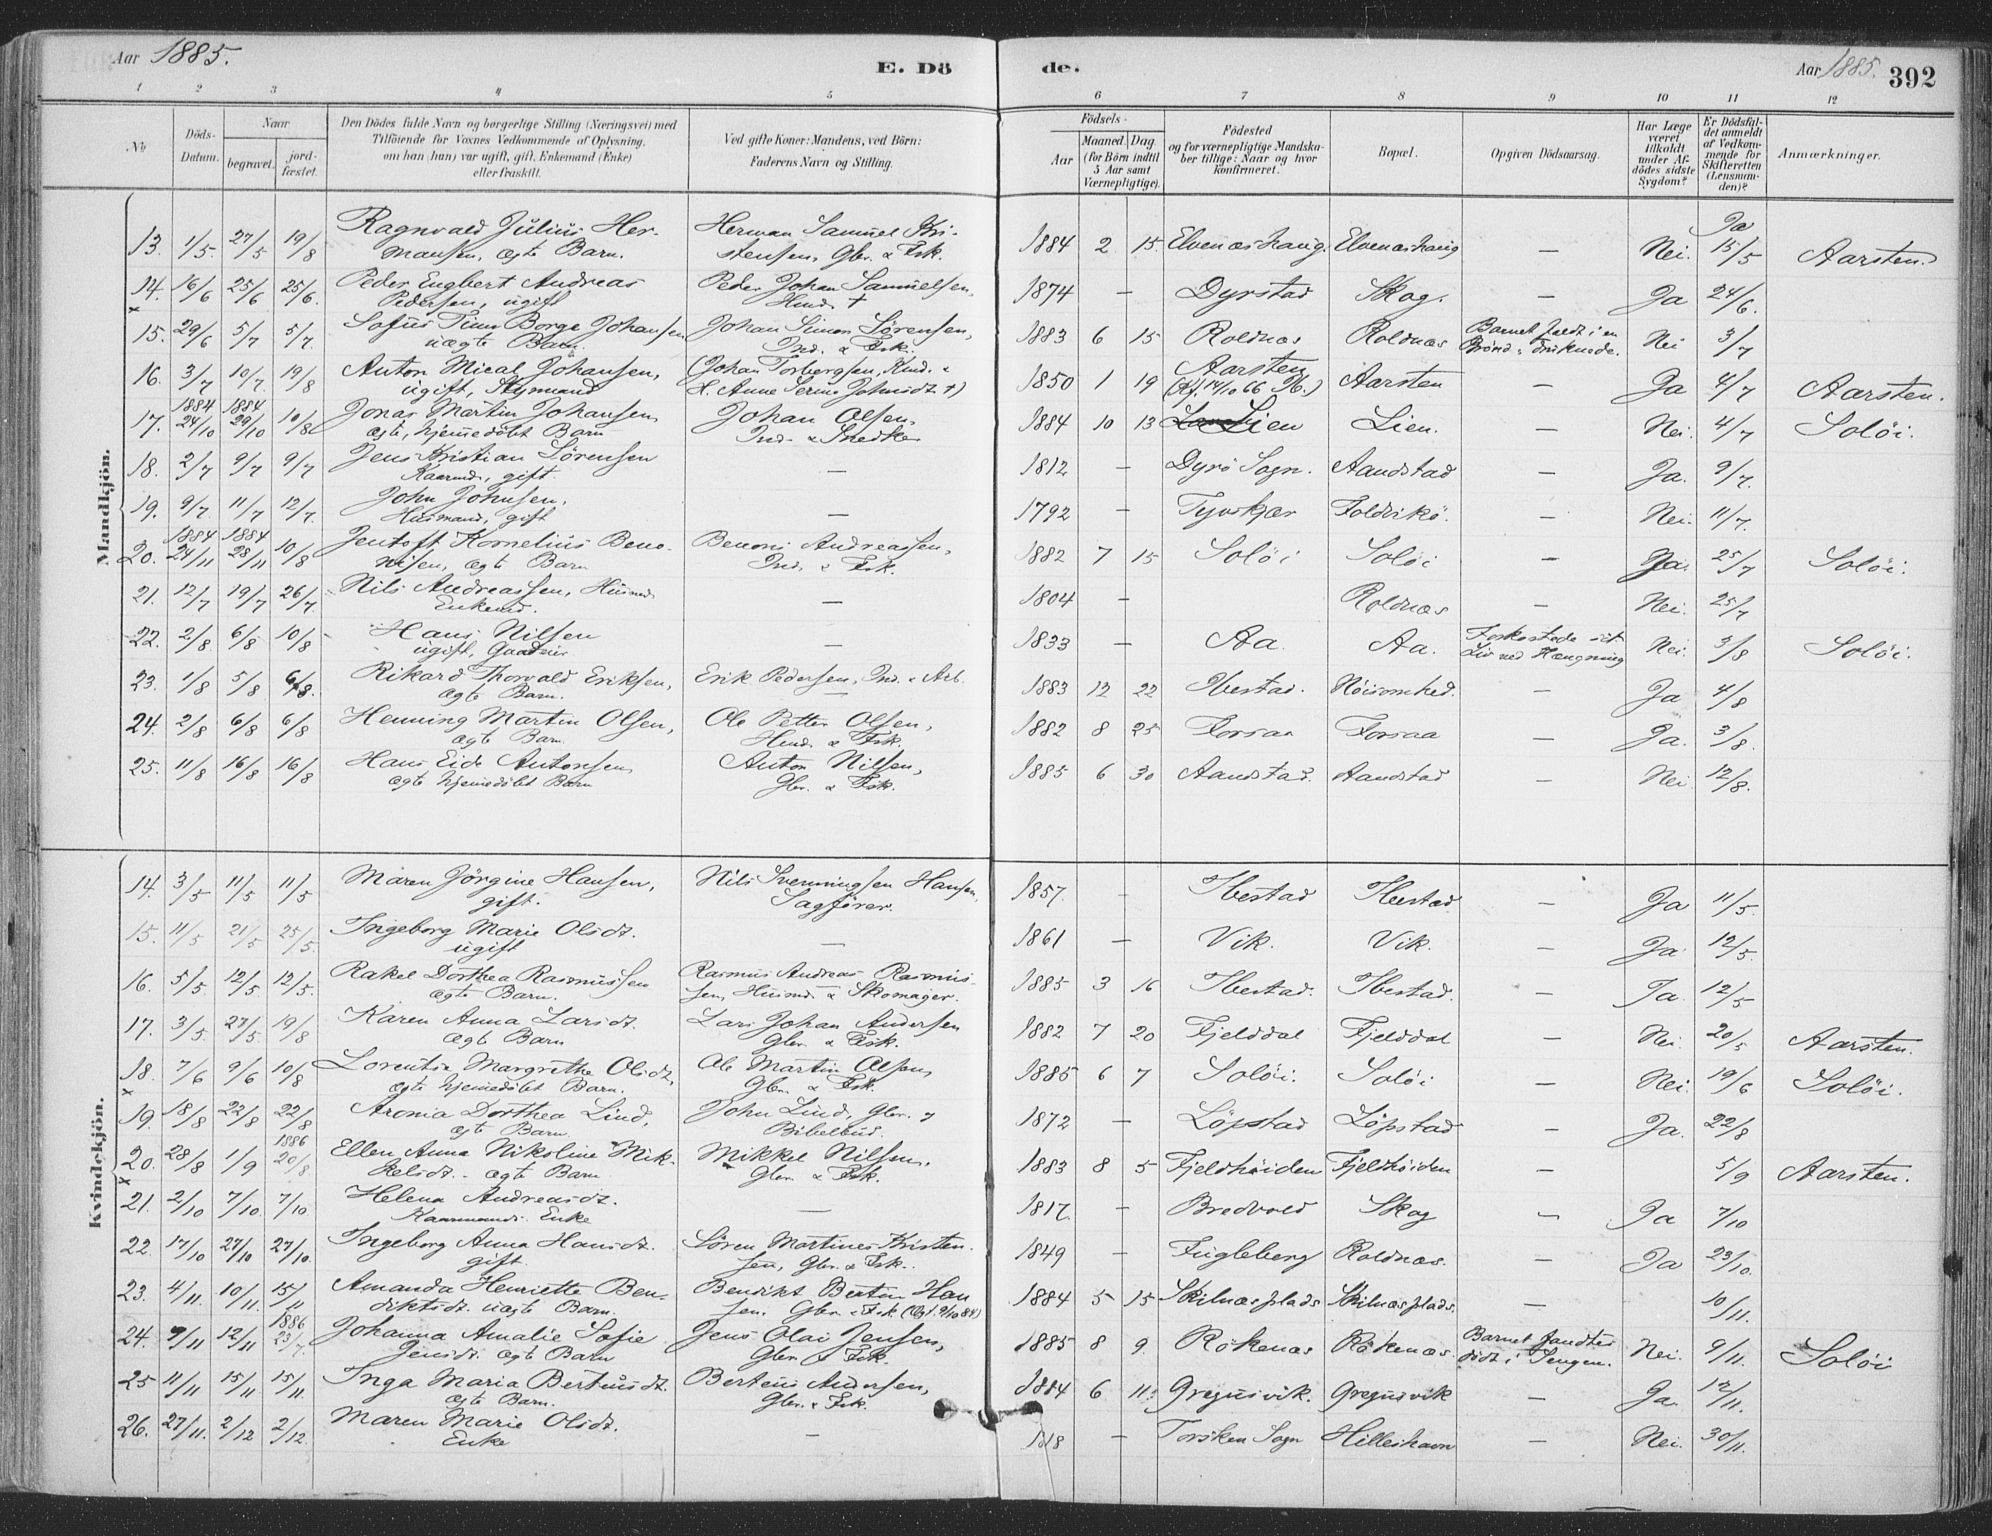 Aar 1885.
E. Dö
de.
Aar 1885. 392
1 2 3 4 5 6 7 8 9 10 11 12
No
Döds-
Datum.
Naar
begravet.
jord-
fæstet.
Den Dödes fulde Navn og borgerlige Stilling (Næringsvei) med
Tilföiende for Voxnes Vedkommende af Oplysning,
om han (hun) var ugift, gift, Enkemand (Enke)
eller fraskilt.
Ved gifte Koner: Mandens, ved Börn:
Faderens Navn og Stilling.
Födsels-
Aar
Maaned. Dag
(for Börn indtil
5 Aar samt
Værnepligtige).
Födested
og for værnepligtige Mandska-
ber tillige: Naar og hvor
konfirmeret.
Bopæl.
Opgiven Dödsaarsag.
Har Læge
været
tilkaldt
under Af-
dödes sidste
Sygdom?
Er Dödsfal-
det anmeldt
af Vedkom-
mende for
Skifteretten
(Lensman-
den)?
Anmærkninger.
Mandkjön.
13. 1/5 27/5 19/8 Ragnvald Julius Her- Herman Samuel Kri- 1884 2 15 Elvenæshaug. Elvenæshaug — Nei. Ja 15/5 Aarsten.
mansen, ægte Barn. stensen, Gbr. & Fsk.
14. 16/6 25/6 25/6. Peder Engbert Andreas Peder Johan Samuelsen, 1874 — Dyrstad Skog. — Ja 24/6.
x Pedersen, ugift Husd. †
15. 29/6 5/7 5/7. Sofus Timm Borge Johansen Johan Simon Sörensen, 1883 6 15 Roldnæs Roldnæs Barnet faldt i en Nei 3/7
uægte Barn. Ind. & Fsk. Brönd & druknede.
16. 3/7 10/7. 19/8 Anton Mical Johansen, (Johan Torbergsen, Husd. & 1850 1 19 Aarsten Aarsten — Ja 4/7 Aarsten.
ugift, Styrmand L. Anne Serine Johnsdt †) (Kf. 14/10 66 Ib.)
17. 1884 24/10 1884 29/10 10/8 Jonas Martin Johansen, Johan Olsen, 1884 10 13 Lien Lien. — Nei. 4/7 Solöi.
ægte, hjemmedöbt Barn Ind. & Snedker
18. 2/7 9/7 9/7 Jens Kristian Sörensen — 1812 — Dyrö Sogn. Aandstad — Ja. 9/7.
Kaarmd., gift.
19. 9/7 11/7 12/7. John Johnsen, — 1792 — Tyvskjær Foldvikö. — Nei. 11/7.
Husmand, gift
20. 1884 24/11 1884 28/11 10/8 Jentoft Kornelius Beno- Benoni Andreassen, 1882 7 15 Solöi Solöi — Ja. 25/7 Solöi.
nisen, ægte Barn Ind. & Fsk.
21. 12/7 19/7 26/7. Nils Andreassen, Husmd — 1804 — Roldnæs — Nei. 25/7
Enkemd.
22. 2/8 6/8 10/8 Hans Nilsen — 1833 — Aa. Aa. Forkortede sit Nei. 3/8 Solöi.
ugift, Liv ved Hængning
23. 1/8 5/8 6/8. Rikard Thorvald Eriksen, Erik Pedersen, Ind. & Arb. 1883 12 22 Ibestad. Nöisomhed. — Ja 4/8
ægte Barn. —
24. 2/8 6/8 6/8 Henning Martin Olsen, Ole Petter Olsen, 1882 8 25 Forsaa Forsaa — Ja. 3/8.
ægte Barn. Husd. & Fsk.
25. 11/8 16/8 16/8 Hans Eide Antonsen Anton Nilsen, 1885 6 30 Aandstad. Aandstad — Nei 12/8.
ægte hjemmedöbt Barn Gbr. & Fsk.
Kvindekjön.
14. 3/5 11/5 11/5 Maren Jörgine Hansen, Nils Svenningsen Hansen, 1857. — Ibestad Ibestad — Ja 11/5.
gift. Sagförer.
15. 11/5 21/5 25/5. Ingeborg Marie Olsdt. — 1861 — Vik. Vik. — Ja. 12/5.
ugift
16. 5/5. 12/5 12/5. Rakel Dorthea Rasmussen Rasmus Andreas Rasmus- 1885 3 16 Ibestad. Ibestad. — Ja. 12/5
ægte Barn. sen, Husmd & Skomager.
17. 3/5. 27/5. 19/8 Karen Anna Larsdt. Lars Johan Andersen 1882 7 20 Fjelddal Fjelddal — Nei. 20/5 Aarsten.
ægte Barn Gbr. & Fsk.
18. 7/6 9/6 10/8 Lorentse Margrethe Olsdt, Ole Martin Olsen, 1885 6 7 Solöi. Solöi — Nei. 19/6 Solöi.
x ægte hjemmedöbt Barn. Gbr. & Fsk.
19. 18/8 22/8 22/8 Aronia Dorthea Lind, John Lind, Gbr. & 1872 — Löpstad Löpstad — Ja. 22/8
ægte Barn. Bibelbud.
20. 28/8 1/9 1886 20/8 Ellen Anna Nikoline Mik- Mikkel Nilsen, 1883 8 5 Fjeldhöiden Fjeldhöiden 5/9 Aarsten.
x kelsdt. ægte Barn Gbr. & Fsk.
21. 2/10 7/10. 7/10 Helena Andreasdt. — 1817. — Bredvold Skog — Ja 7/10
Kaarmands Enke
22. 17/10 27/10 27/10. Ingeborg Anna Hansdt. Sören Martines Kristen- 1849 — Fugleberg Roldnæs. — Ja 23/10.
gift. sen, Gbr. & Fsk.
23. 4/11. 10/11. 15/11 Amanda Henriette Ben- Bendikt Bertin Han 1884 5 15 Skilnæsplads Skilnæsplads. — 10/11.
diktsdt. uægte Barn. sen. Gbr. & Fsk
24. 9/11 12/11 1886 23/7. Johanna Amalie Sofie Jens Olai Jensen, 1885 8 9 Rökenæs Rökenæs. Barnet fandtes Nei. 9/11. Solöi
Jensdt. ægte Barn Gbr. & Fsk. dödt i Sengen.
25 11/11 15/11 15/11. Inga Maria Berteusdt. Berteus Andersen, 1884 6 11 Gregusvik. Gregusvik — Ja 12/11.
ægte Barn. Gbr. & Fsk.
26. 27/11. 2/12 2/12. Maren Marie Olsdt. — Torsken Sogn Hilleshavn — Nei. 30/11.
Enke